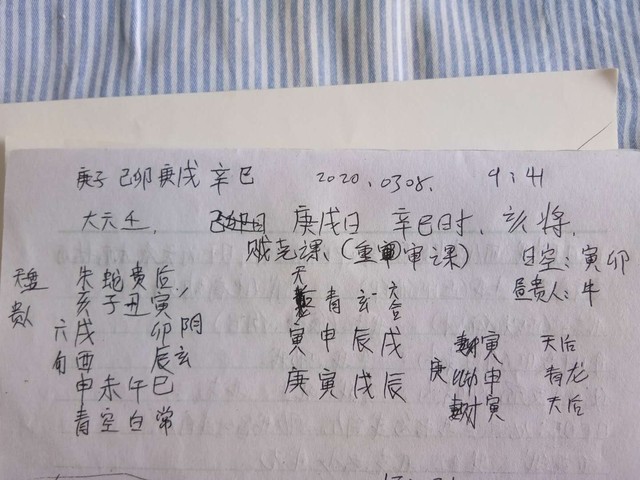 庚子 己卯 庚戌 辛巳 2020.0308. 9:41
大六壬. 庚戌日 辛巳时、亥将.
贼克课、(重审课) 日空:寅卯
昼贵人:牛
天盘 朱蛇贵后
贵人 亥子丑寅 青玄六合
六戌 卯阴 寅申辰戌 寅 天后
勾酉 辰玄 庚寅戌辰 庚 申 青龙
申未午巳 寅 天后
青空白常